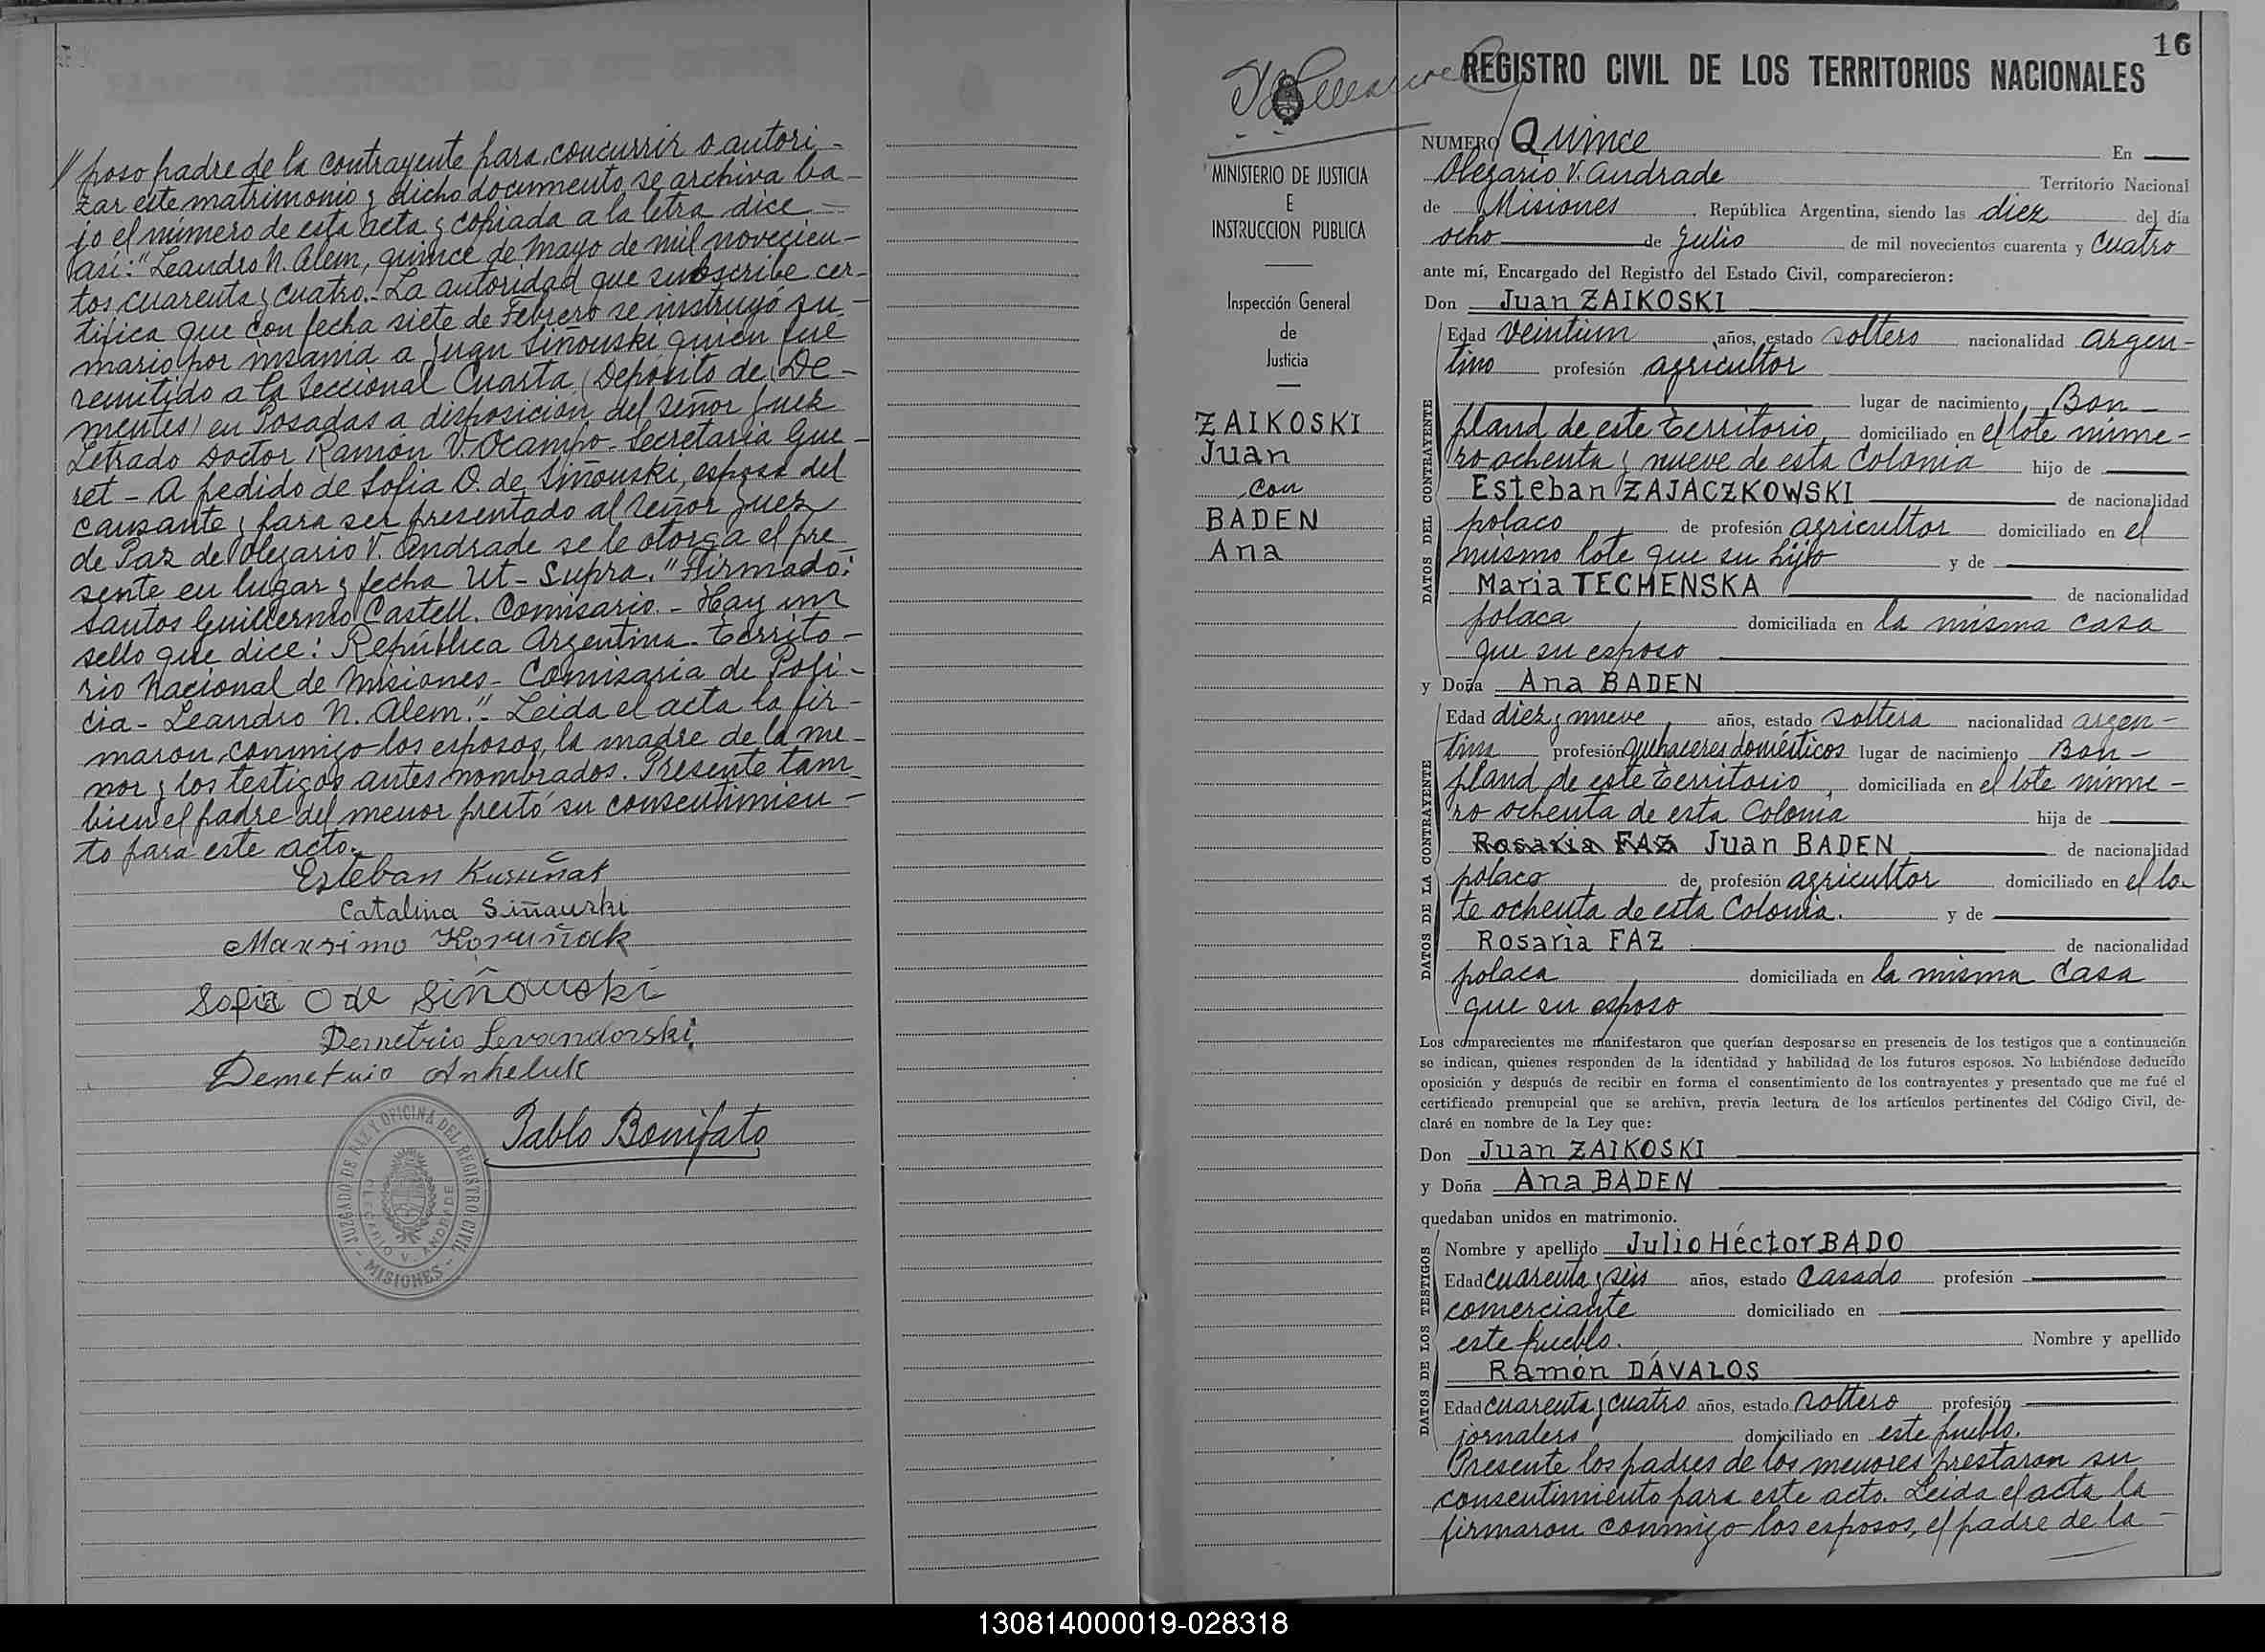 // poso padre de la contrayente para concurrir o autori-
zar este matrimonio y dicho documento se archiva ba-
jo el número de esta acta y copiada a la letra dice
así: "Leandro N. Alem, quince de Mayo de mil novecien-
tos cuarenta y cuatro.- La autoridad que subscribe cer-
tifica que con fecha siete de Febrero se instruyó su-
mario por insania a Juan Siñouski quien fué
remitido a la Seccional Cuarta (Depósito de De-
mentes) en Posadas a disposición del señor Juez
Letrado Doctor Ramón V. Ocampo - Secretaría Gue-
ret - A pedido de Sofia O. de Siñouski, esposa del
causante y para ser presentado al señor Juez
de Paz de Olegario V. Andrade se le otorga el pre-
sente en lugar y fecha Ut-Supra. "Firmado:
Santos Guillermo Castell. Comisario.- Hay un
sello que dice: República Argentina - Territo-
rio Nacional de Misiones - Comisaría de Poli-
cia - Leandro N. Alem." Leida el acta la fir-
maron conmigo los esposos, la madre de la me-
nor y los testigos antes nombrados. Presente tam-
bien el padre del menor prestó su consentimien-
to para este acto.
Esteban
Catalina Siñauski
Maxsimo
Sofia O de Siñouski
Demetrio Levandorski
Demetrio Anheluk
Pablo Bonifato
JUZGADO DE PAZ Y OFICINA DEL REGISTRO CIVIL
OLEGARIO V. ANDRADE
- MISIONES -
16
REGISTRO CIVIL DE LOS TERRITORIOS NACIONALES
MINISTERIO DE JUSTICIA
E
INSTRUCCION PUBLICA
Inspección General
de
Justicia
ZAIKOSKI
Juan
con
BADEN
Ana
NUMERO Quince En
Olegario V. Andrade Territorio Nacional
de Misiones, República Argentina, siendo las diez del día
ocho de Julio de mil novecientos cuarenta y cuatro
ante mí, Encargado del Registro del Estado Civil, comparecieron:
Don Juan ZAIKOSKI
DATOS DEL CONTRAYENTE
Edad veintiun años, estado soltero nacionalidad argen-
tino profesión agricultor
lugar de nacimiento Bon-
pland de este Territorio domiciliado en el lote núme-
ro ochenta y nueve de esta Colonia hijo de
Esteban ZAJACZKOWSKI de nacionalidad
polaco de profesión agricultor domiciliado en el
mismo lote que su hijo y de
Maria TECHENSKA de nacionalidad
polaca domiciliada en la misma casa
que su esposo
y Doña Ana BADEN
DATOS DE LA CONTRAYENTE
Edad diez y nueve años, estado soltera nacionalidad argen-
tina profesión quehaceres domésticos lugar de nacimiento Bon-
pland de este Territorio, domiciliada en el lote núme-
ro ochenta de esta Colonia hija de
Rosaria FAZ Juan BADEN de nacionalidad
polaco de profesión agricultor domiciliado en el lo-
te ochenta de esta Colonia. y de
Rosaria FAZ de nacionalidad
polaca domiciliada en la misma casa
que su esposo
Los comparecientes me manifestaron que querían desposarse en presencia de los testigos que a continuación
se indican, quienes responden de la identidad y habilidad de los futuros esposos. No habiéndose deducido
oposición y después de recibir en forma el consentimiento de los contrayentes y presentado que me fué el
certificado prenupcial que se archiva, previa lectura de los artículos pertinentes del Código Civil, de-
claré en nombre de la Ley que:
Don Juan ZAIKOSKI
y Doña Ana BADEN
quedaban unidos en matrimonio.
DATOS DE LOS TESTIGOS
Nombre y apellido Julio Héctor BADO
Edad cuarenta y seis años, estado casado profesión
comerciante domiciliado en
este pueblo. Nombre y apellido
Ramón DÁVALOS
Edad cuarenta y cuatro años, estado soltero profesión
jornalero domiciliado en este pueblo.
Presente los padres de los menores prestaron su
consentimiento para este acto. Leida el acta la
firmaron conmigo los esposos, el padre de la
130814000019-028318